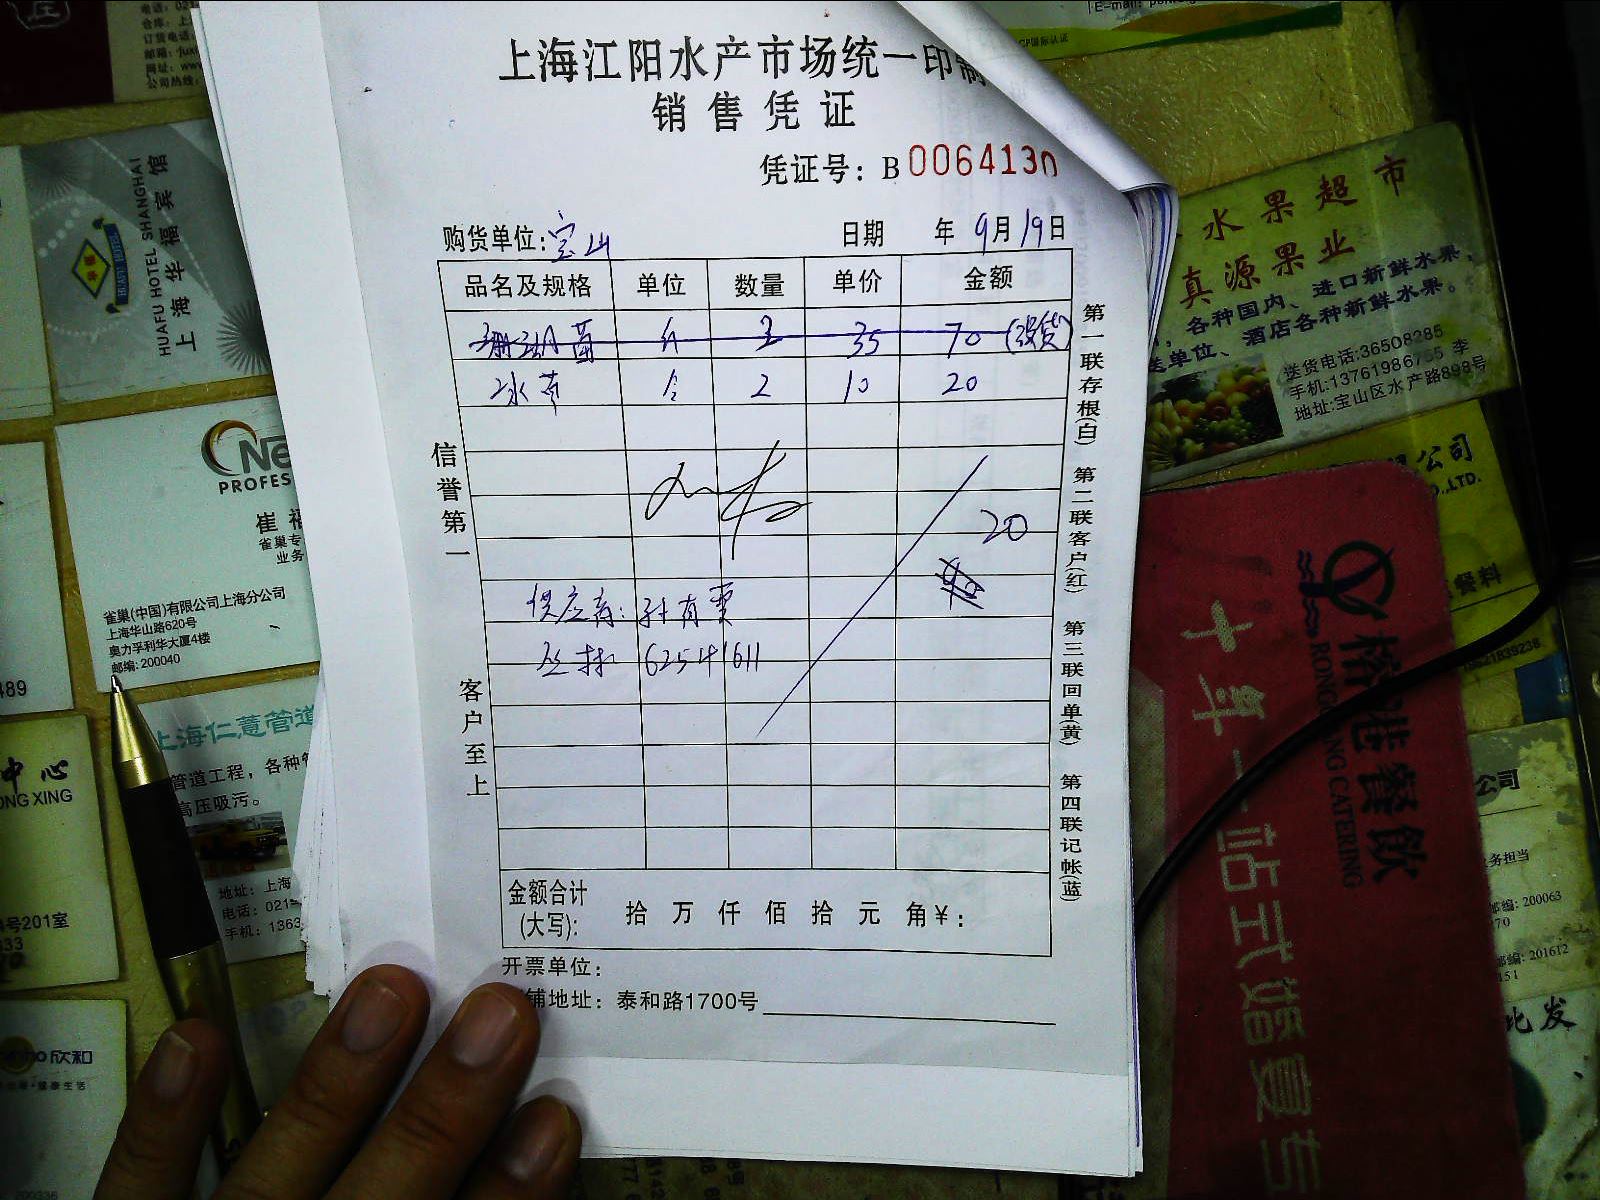 上海江阳水产市场统一印制
销售凭证
凭证号：B 0064130
购货单位：宝山 日期 年 9月19日
品名及规格 单位 数量 单价 金额
珊瑚菌 斤 2 35 70 (没货)
冰草 个 2 10 20
20
供应商：孙有雷
62541611
金额合计
(大写)： 拾 万 仟 佰 拾 元 角 ¥：
开票单位：
铺地址：泰和路1700号
信誉第一
客户至上
第一联存根(白)
第二联客户(红)
第三联回单(黄)
第四联记帐(蓝)
HUAFU HOTEL SHANGHAI
上海华福宾馆
HUAFU HOTEL
PROFES
崔福
雀巢专
业务
雀巢(中国)有限公司上海分公司
上海华山路620号
奥力孚利华大厦4楼
邮编: 200040
上海仁薏管道
管道工程，各种管
高压吸污。
地址：上海
电话：021
手机：1363
中心
ONG XING
号201室
欣和
水果超市
真源果业
各种国内、进口新鲜水果，
送单位、酒店各种新鲜水果。
送货电话:36508285
手机:13761986755 李
地址:宝山区水产路898号
公司
O.,LTD.
餐料
榕港餐饮
RONGGANG CATERING
十年一站式婚宴专
公司
务担当
邮编: 200063
邮编: 201612
批发